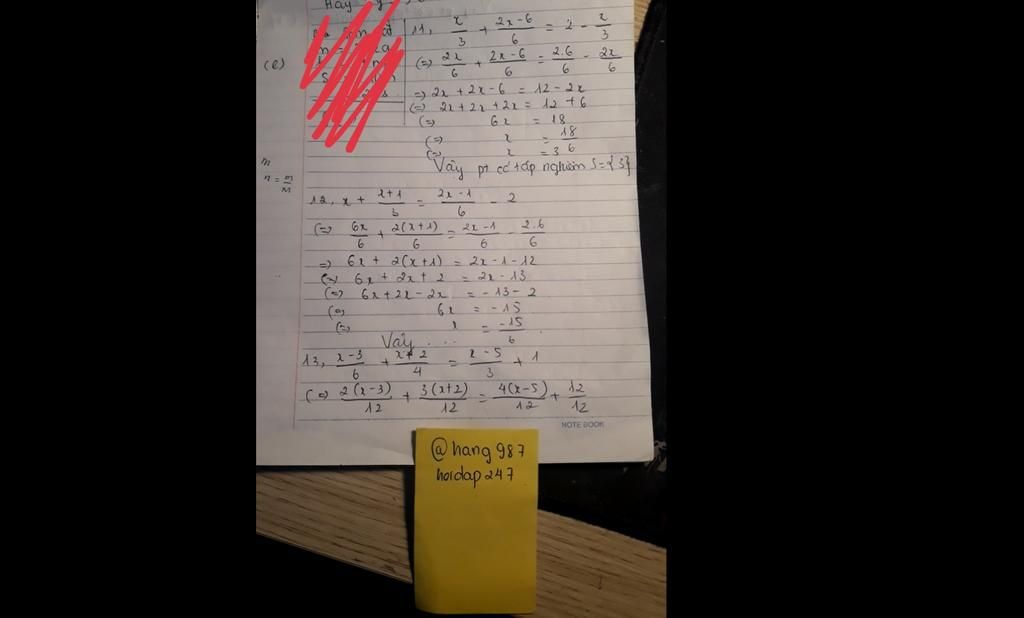 Hay
(e)
11, x/3 + (2x-6)/6 = 2 - x/3
(=) 2x/6 + (2x-6)/6 = 2.6/6 - 2x/6
=> 2x + 2x - 6 = 12 - 2x
(=) 2x + 2x + 2x = 12 + 6
(=) 6x = 18
(=) x = 18/6
(=) x = 3
Vậy pt có tập nghiệm S = {3}
m
n = m/M
12, x + (x+1)/3 = (2x-1)/6 - 2
(=) 6x/6 + 2(x+1)/6 = (2x-1)/6 - 2.6/6
=> 6x + 2(x+1) = 2x - 1 - 12
(=) 6x + 2x + 2 = 2x - 13
(=) 6x + 2x - 2x = -13 - 2
(=) 6x = -15
(=) x = -15/6
Vậy ...
13, (x-3)/6 + (x+2)/4 = (x-5)/3 + 1
(=) 2(x-3)/12 + 3(x+2)/12 = 4(x-5)/12 + 12/12
NOTE BOOK
@hang987
hoidap247